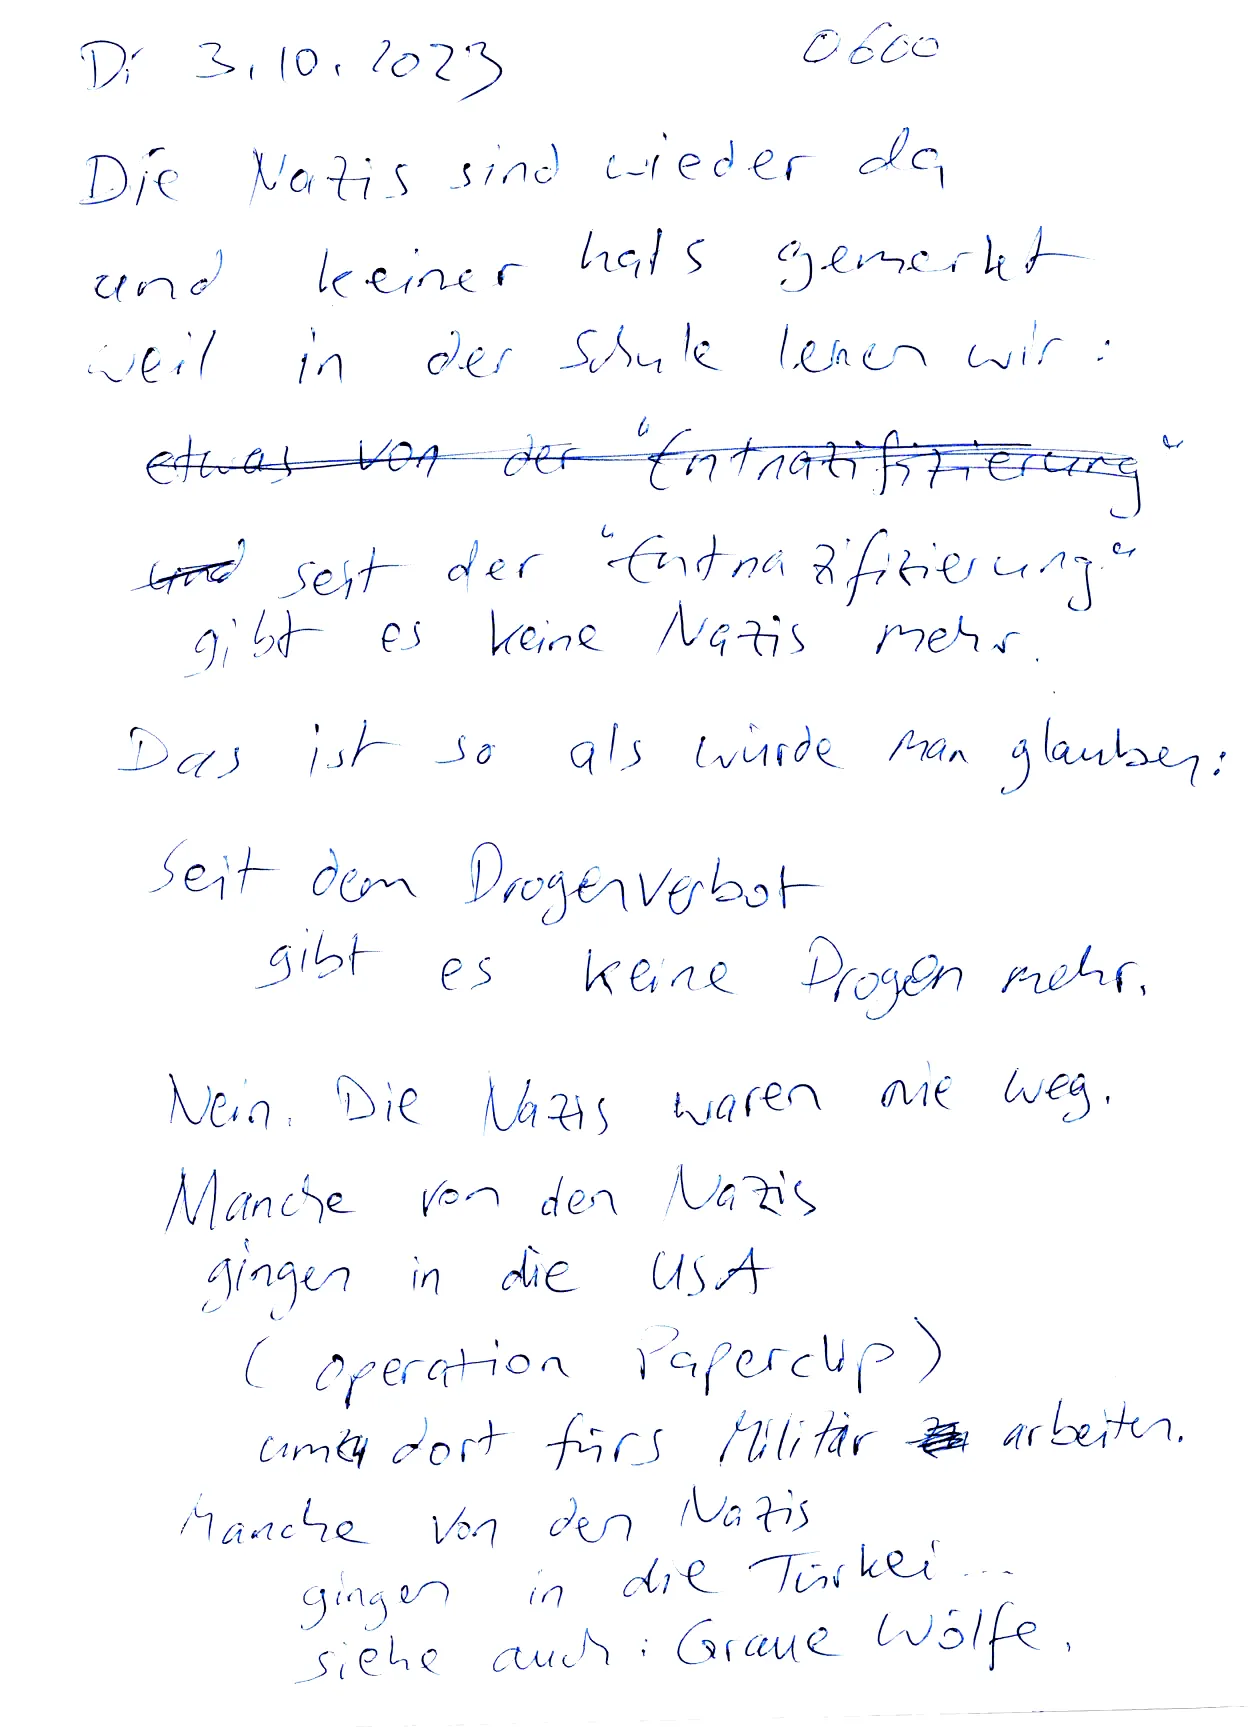 Di 3.10.2023 0600
Die Nazis sind wieder da
und keiner hats gemerkt
weil in der Schule lernen wir:
etwas von der "Entnazifizierung"
und seit der "Entnazifizierung"
gibt es keine Nazis mehr.
Das ist so als würde man glauben:
Seit dem Drogenverbot
gibt es keine Drogen mehr.
Nein. Die Nazis waren nie weg.
Manche von den Nazis
gingen in die USA
(Operation Paperclip)
um zu dort fürs Militär zu arbeiten.
Manche von den Nazis
gingen in die Türkei...
siehe auch: Graue Wölfe.